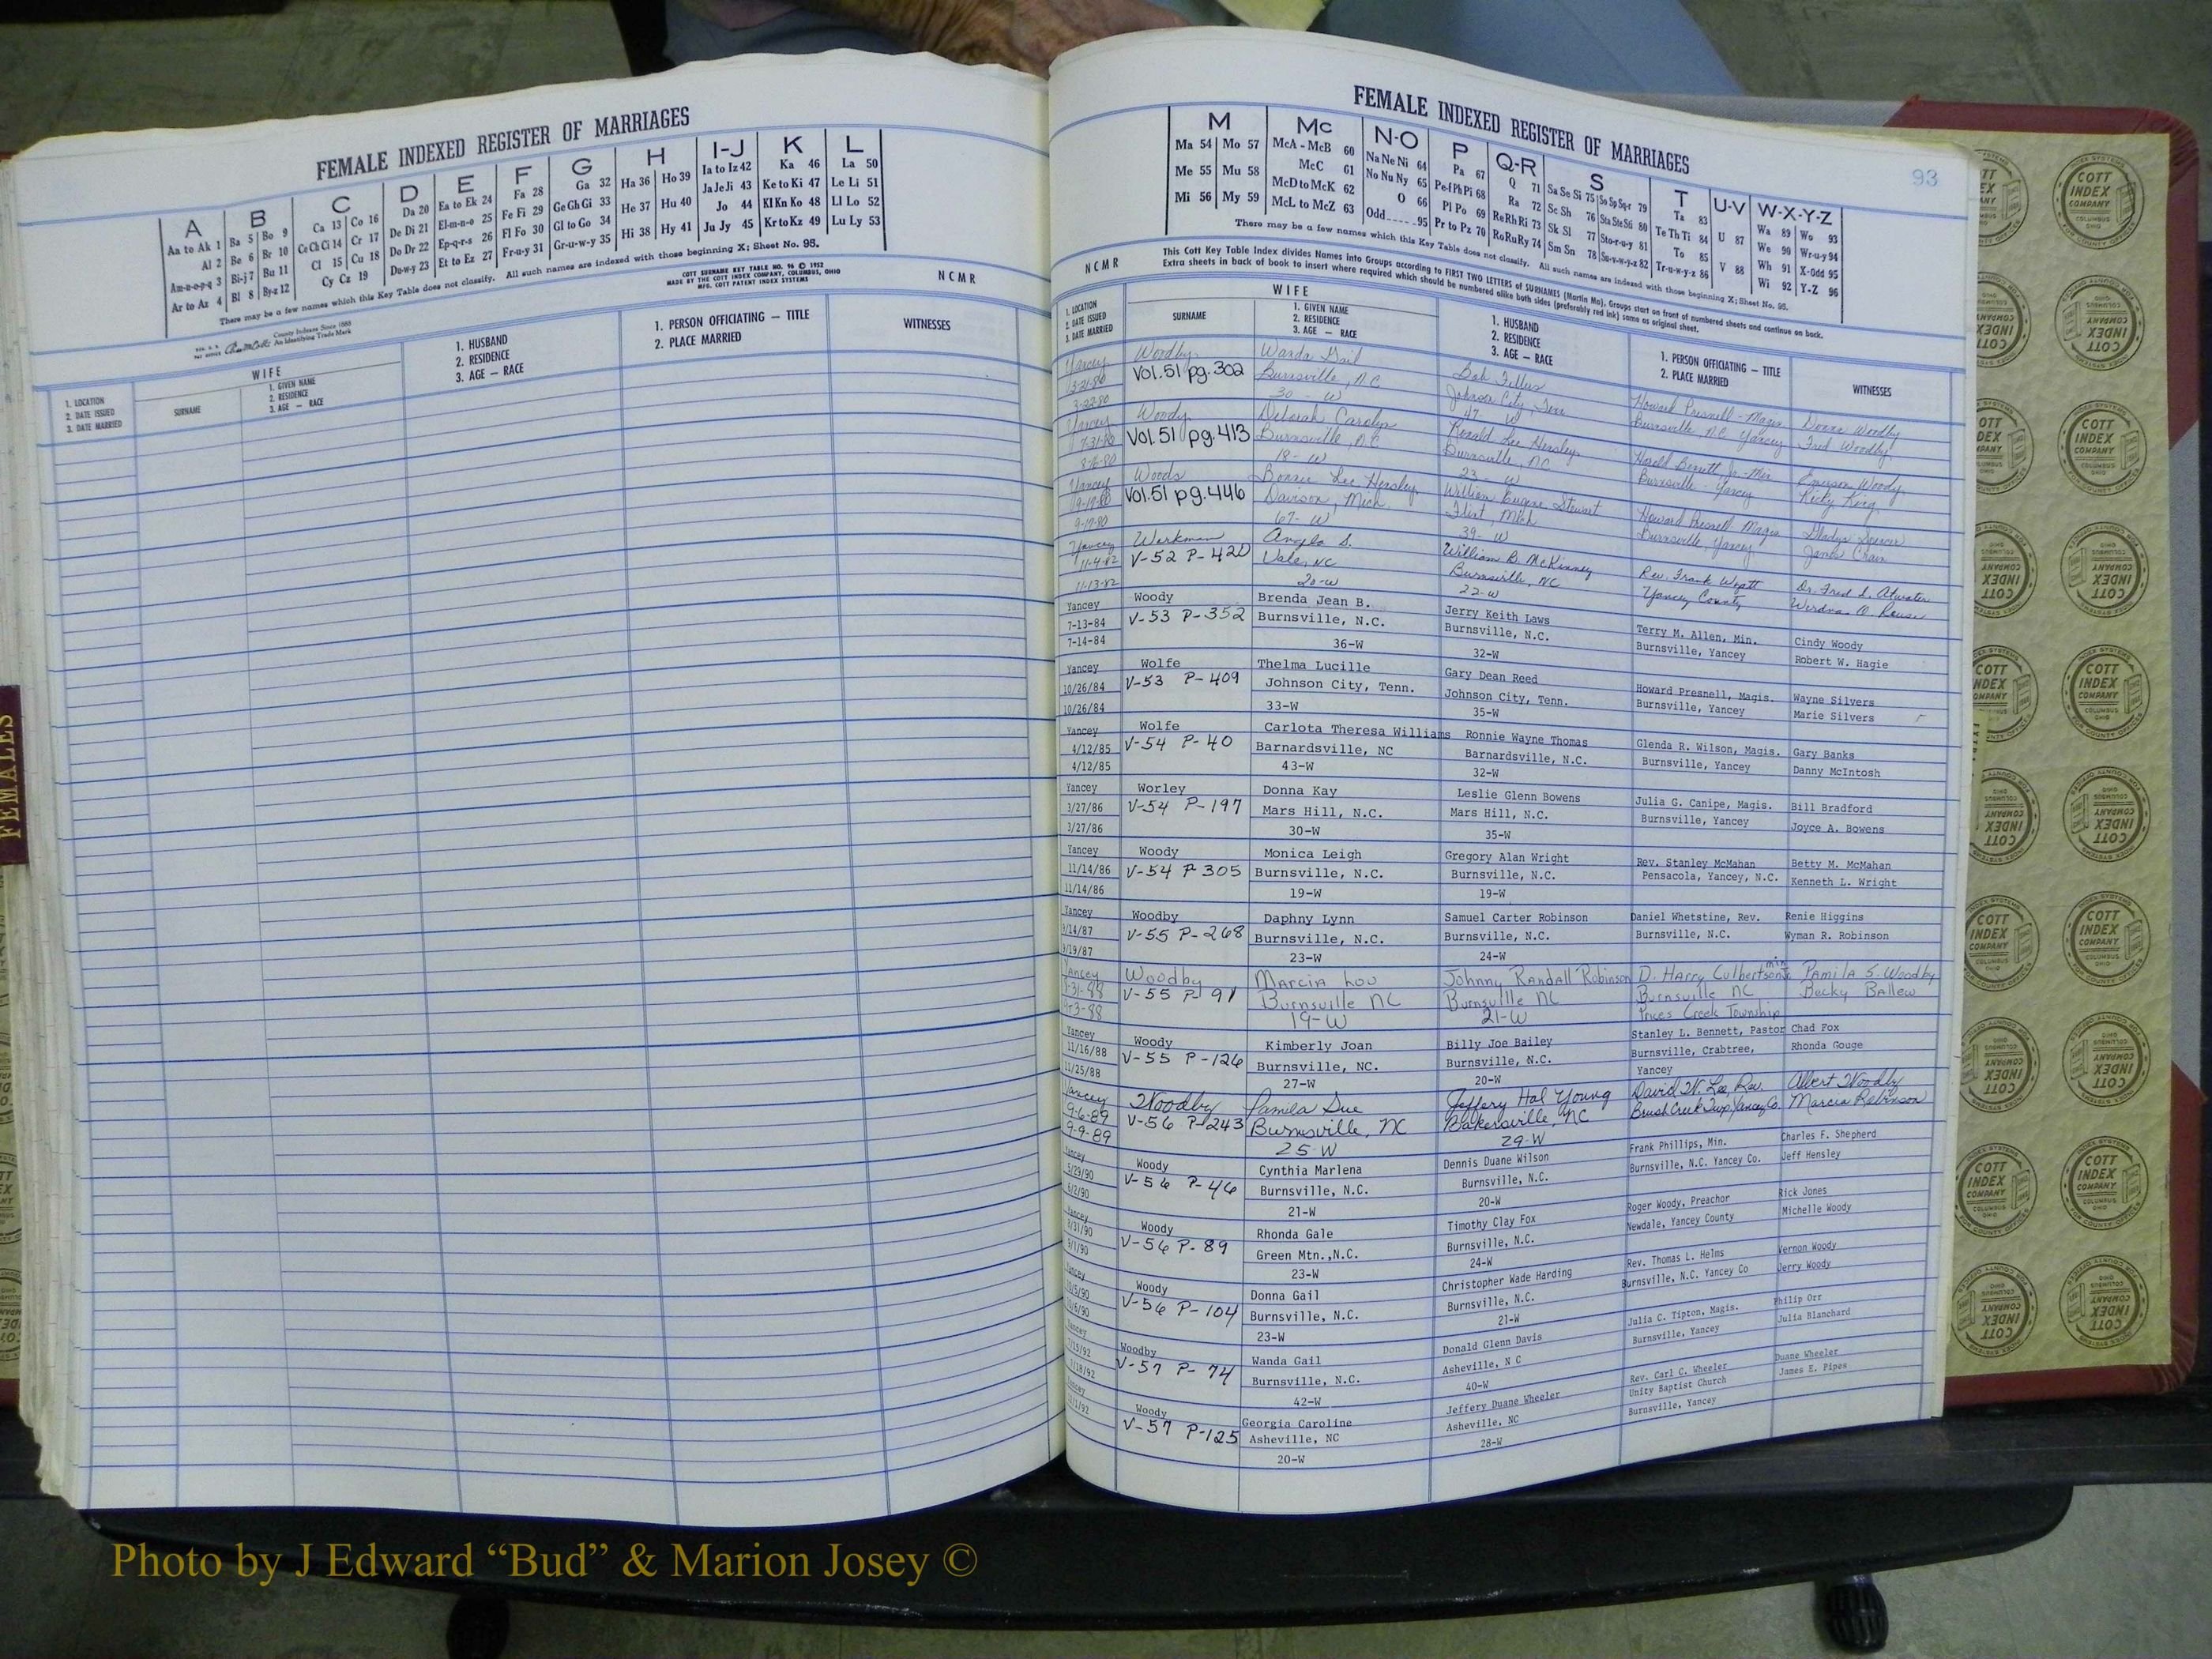 FEMALE INDEXED REGISTER OF MARRIAGES
A B C D E F G H I-J K L
Aa to Ak 1 Ba 5 Bo 9 Ca 13 Co 16 Da 20 Ea to Ek 24 Fa 28 Ga 32 Ha 36 Ho 39 Ia to Iz 42 Ka 46 La 50
Al 2 Be 6 Br 10 Ce Ch Ci 14 Cr 17 De Di 21 El-m-n-o 25 Fe Fi 29 Ge Gh Gi 33 He 37 Hu 40 Ja Je Ji 43 Ke to Ki 47 Le Li 51
Am-n-o-p-q 3 Bi-j 7 Bu 11 Cl 15 Cu 18 Do Dr 22 Ep-q-r-s 26 Fl Fo 30 Gl to Go 34 Hi 38 Hy 41 Jo 44 Kl Kn Ko 48 Ll Lo 52
Ar to Az 4 Bl 8 By-z 12 Cy Cz 19 Du-w-y 23 Et to Ez 27 Fr-u-y 31 Gr-u-w-y 35 Ju Jy 45 Kr to Kz 49 Lu Ly 53
There may be a few names which this Key Table does not classify. All such names are indexed with those beginning X; Sheet No. 95.
COTT SURNAME KEY TABLE NO. 96 © 1952
MADE BY THE COTT INDEX COMPANY, COLUMBUS, OHIO
MFG. COTT PATENT INDEX SYSTEMS
NCMR
County Indexes Since 1888
An Identifying Trade Mark
1. LOCATION
2. DATE ISSUED
3. DATE MARRIED
WIFE
SURNAME
1. GIVEN NAME
2. RESIDENCE
3. AGE — RACE
1. HUSBAND
2. RESIDENCE
3. AGE — RACE
1. PERSON OFFICIATING — TITLE
2. PLACE MARRIED
WITNESSES
FEMALES
FEMALE INDEXED REGISTER OF MARRIAGES
93
M Mc N-O P Q-R S T U-V W-X-Y-Z
Ma 54 Mo 57 McA - McB 60 Na Ne Ni 64 Pa 67 Q 71 Sa Se Si 75 So Sp Sq-r 79 Ta 83 U 87 Wa 89 Wo 93
Me 55 Mu 58 McC 61 No Nu Ny 65 Pe-f Ph Pi 68 Ra 72 Sc Sh 76 Sta Ste Sti 80 Te Th Ti 84 V 88 We 90 Wr-u-y 94
Mi 56 My 59 McD to McK 62 O 66 Pl Po 69 Re Rh Ri 73 Sk Sl 77 Sto-r-u-y 81 To 85 Wh 91 X-Odd 95
McL to McZ 63 Odd 95 Pr to Pz 70 Ro Ru Ry 74 Sm Sn 78 Su-v-w-y-z 82 Tr-u-w-y-z 86 Wi 92 Y-Z 96
There may be a few names which this Key Table does not classify. All such names are indexed with those beginning X; Sheet No. 95.
NCMR
This Cott Key Table Index divides Names into Groups according to FIRST TWO LETTERS of SURNAMES (Martin Ma). Groups start on front of numbered sheets and continue on back.
Extra sheets in back of book to insert where required which should be numbered alike both sides (preferably red ink) same as original sheet.
1. LOCATION
2. DATE ISSUED
3. DATE MARRIED
WIFE
SURNAME
1. GIVEN NAME
2. RESIDENCE
3. AGE — RACE
1. HUSBAND
2. RESIDENCE
3. AGE — RACE
1. PERSON OFFICIATING — TITLE
2. PLACE MARRIED
WITNESSES
Yancey Woodby Wanda Gail Bob Howard Presnell - Magis Woodby
3-21-80 Vol. 51 pg. 302 Burnsville, N.C. Johnson City, Tenn Burnsville NC Yancey Fred Woodby
3-22-80 30 - W 47 - W
Yancey Woody Deborah Carolyn Ronald Lee Hensley Min. Emerson Woody
7-31-80 Vol. 51 pg. 413 Burnsville, N.C. Burnsville, NC Burnsville - Yancey Ricky King
18 - W 23 - W
Yancey Woods Bonnie Lee Hensley William Eugene Stewart Howard Presnell Magis Gladys
9-19-80 Vol. 51 pg. 446 Davison, Mich. Flint, Mich Burnsville, Yancey
9-19-80 67 - W 39 - W
Yancey Workman Angela S. William B. McKinney Rev. Frank Wyatt Dr. Fred L. Atwater
11-9-82 V-52 P-420 Vale, NC Burnsville, NC Yancey County
11-13-82 20-W 22-W
Yancey Woody Brenda Jean B. Jerry Keith Laws Terry M. Allen, Min. Cindy Woody
7-13-84 V-53 P-352 Burnsville, N.C. Burnsville, N.C. Burnsville, Yancey Robert W. Hagie
7-14-84 36-W 32-W
Yancey Wolfe Thelma Lucille Gary Dean Reed Howard Presnell, Magis. Wayne Silvers
10/26/84 V-53 P-409 Johnson City, Tenn. Johnson City, Tenn. Burnsville, Yancey Marie Silvers
10/26/84 33-W 35-W
Yancey Wolfe Carlota Theresa Williams Ronnie Wayne Thomas Glenda R. Wilson, Magis. Gary Banks
4/12/85 V-54 P-40 Barnardsville, NC Barnardsville, N.C. Burnsville, Yancey Danny McIntosh
4/12/85 43-W 32-W
Yancey Worley Donna Kay Leslie Glenn Bowens Julia G. Canipe, Magis. Bill Bradford
3/27/86 V-54 P-197 Mars Hill, N.C. Mars Hill, N.C. Burnsville, Yancey Joyce A. Bowens
3/27/86 30-W 35-W
Yancey Woody Monica Leigh Gregory Alan Wright Rev. Stanley McMahan Betty M. McMahan
11/14/86 V-54 P 305 Burnsville, N.C. Burnsville, N.C. Pensacola, Yancey, N.C. Kenneth L. Wright
11/14/86 19-W 19-W
Yancey Woodby Daphny Lynn Samuel Carter Robinson Daniel Whetstine, Rev. Renie Higgins
/14/87 V-55 P-268 Burnsville, N.C. Burnsville, N.C. Burnsville, N.C. Wyman R. Robinson
/19/87 23-W 24-W
Yancey Woodby Marcia Lou Johnny Randall Robinson D. Harry Culbertson Jr. min Pamila S. Woodby
-31-88 V-55 P-91 Burnsville NC Burnsville NC Burnsville NC Becky Ballew
-3-88 19-W 21-W Prices Creek Township
Yancey Woody Kimberly Joan Billy Joe Bailey Stanley L. Bennett, Pastor Chad Fox
11/16/88 V-55 P-126 Burnsville, NC. Burnsville, N.C. Burnsville, Crabtree, Rhonda Gouge
11/25/88 27-W 20-W Yancey
Yancey Woodby Pamila Sue Jeffery Hal Young David W. Lee, Rev. Albert Woodby
9-6-89 V-56 P-243 Burnsville, NC Bakersville, NC Brush Creek Twp, Yancey Co. Marcia Robinson
9-9-89 25-W 29-W
Yancey Woody Cynthia Marlena Dennis Duane Wilson Frank Phillips, Min. Charles F. Shepherd
5/29/90 V-56 P-46 Burnsville, N.C. Burnsville, N.C. Burnsville, N.C. Yancey Co. Jeff Hensley
6/2/90 21-W 20-W
Yancey Woody Rhonda Gale Timothy Clay Fox Roger Woody, Preachor Rick Jones
8/31/90 V-56 P-89 Green Mtn.,N.C. Burnsville, N.C. Newdale, Yancey County Michelle Woody
9/1/90 23-W 24-W
Yancey Woody Donna Gail Christopher Wade Harding Rev. Thomas L. Helms Vernon Woody
10/5/90 V-56 P-104 Burnsville, N.C. Burnsville, N.C. Burnsville, N.C. Yancey Co Jerry Woody
10/6/90 23-W 21-W
Yancey Woodby Wanda Gail Donald Glenn Davis Julia C. Tipton, Magis. Philip Orr
/15/92 V-57 P-74 Burnsville, N.C. Asheville, N C Burnsville, Yancey Julia Blanchard
/18/92 42-W 40-W
Yancey Woody Georgia Caroline Jeffery Duane Wheeler Rev. Carl C. Wheeler Duane Wheeler
/1/92 V-57 P-125 Asheville, NC Asheville, NC Unity Baptist Church James E. Pipes
20-W 28-W Burnsville, Yancey
COTT INDEX COMPANY COLUMBUS OHIO
Photo by J Edward “Bud” & Marion Josey ©